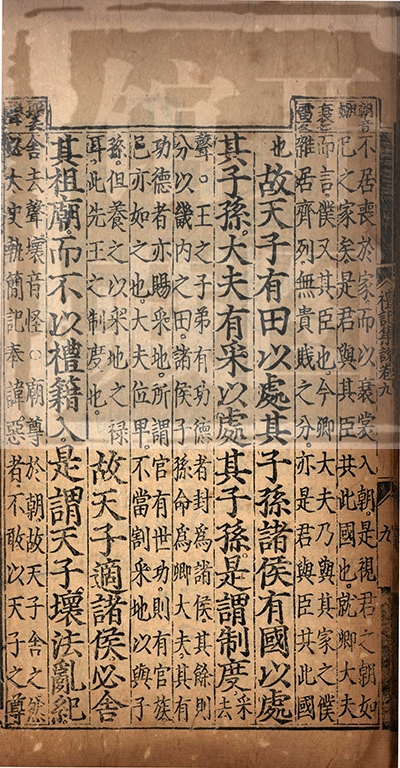 不居喪於家而以衰裳入朝是視君之朝如
己之家矣是君與其臣共此國也就卿大夫
而言僕又其臣也今卿大夫乃與其家之僕
雜居齊列無貴賤之分亦是君與臣共此國
也故天子有田以處其子孫諸侯有國以處
其子孫大夫有采以處其子孫是謂制度采去
聲王之子弟有功德者封爲諸侯其餘則
分以畿內之田諸侯子孫命爲卿大夫其有
功德者亦賜采地所謂官有世功則有官族
已亦如之也大夫位卑不當割采地以與子
孫但養之以采地之祿
耳此先王之制度也
故天子適諸侯必舍
其祖廟而不以禮籍入是謂天子壞法亂紀
舍去聲壞音怪○廟尊於朝故天子舍之然
太史執簡記奉諱惡者不敢以天子之尊
禮記集說卷九
九